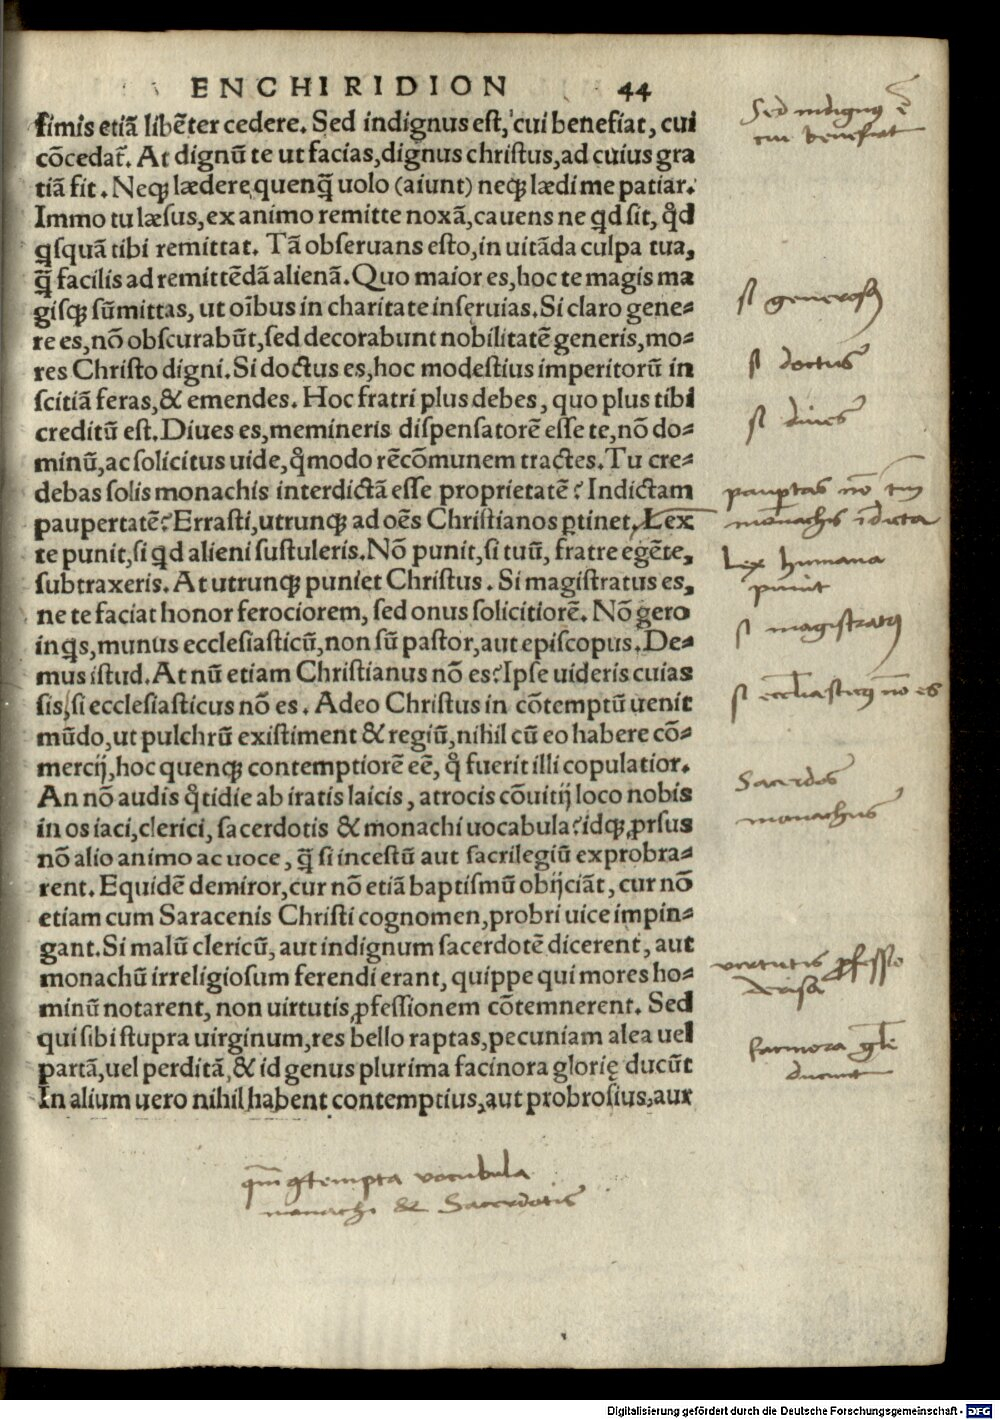 ENCHIRIDION 44
simis etiã libẽter cedere. Sed indignus est, cui benefiat, cui
cõcedat̃. At dignũ te ut facias, dignus christus, ad cuius gra
tiã fit. Neqꝫ lædere quenq̃ uolo (aiunt) neqꝫ lædi me patiar.
Immo tu læsus, ex animo remitte noxã, cauens ne qd sit, qd̃
qsquã tibi remittat. Tã obseruans esto, in uitãda culpa tua,
q̃ facilis ad remittẽdã alienã. Quo maior es, hoc te magis ma
gisqꝫ sũmittas, ut oĩbus in charitate inseruias. Si claro gene⸗
re es, nõ obscurabũt, sed decorabunt nobilitatẽ generis, mo⸗
res Christo digni. Si doctus es, hoc modestius imperitorũ in
scitiã feras, & emendes. Hoc fratri plus debes, quo plus tibi
creditũ est. Diues es, memineris dispensatorẽ esse te, nõ do⸗
minũ, ac solicitus uide, q̊modo rẽ cõmunem tractes. Tu cre⸗
debas solis monachis interdictã esse proprietatẽ? Indictam
paupertatẽ? Errasti, utrunqꝫ ad oẽs Christianos ꝑtinet. Lex
te punit, si qd alieni sustuleris. Nõ punit, si tuũ, fratre egẽte,
subtraxeris. At utrunqꝫ puniet Christus. Si magistratus es,
ne te faciat honor ferociorem, sed onus solicitiorẽ. Nõ gero
inqs, munus ecclesiasticũ, non sũ pastor, aut episcopus. De⸗
mus istud. At nũ etiam Christianus nõ es? Ipse uideris cuias
sis, si ecclesiasticus nõ es. Adeo Christus in cõtemptũ uenit
mũdo, ut pulchrũ existiment & regiũ, nihil cũ eo habere cõ⸗
mercij, hoc quenqꝫ contemptiorẽ eẽ, q̊ fuerit illi copulatior.
An nõ audis q̊tidie ab iratis laicis, atrocis cõuitij loco nobis
in os iaci, clerici, sacerdotis & monachi uocabula? idqꝫ ꝓrsus
nõ alio animo ac uoce, q̃ si incestũ aut sacrilegiũ exprobra⸗
rent. Equidẽ demiror, cur nõ etiã baptismũ obijciãt, cur nõ
etiam cum Saracenis Christi cognomen, probri uice impin⸗
gant. Si malũ clericũ, aut indignum sacerdotẽ dicerent, aut
monachũ irreligiosum ferendi erant, quippe qui mores ho⸗
minũ notarent, non uirtutis ꝓfessionem cõtemnerent. Sed
qui sibi stupra uirginum, res bello raptas, pecuniam alea uel
partã, uel perditã, & id genus plurima facinora glorię ducũt
In alium uero nihil habent contemptius, aut probrosius, aut
Sed indignus ẽ
cui benefiat
si generosus
si doctus
si diues
paupertas nõ tm̃
monachis ĩdicta
Lex humana
punit
si magistratus
si ecclesiasticus nõ es
Sacerdos
monachus
uirtutis ꝓfessio
facinora glẽ
ducunt
qm̃ ꝯtempta vocabula
monachi & Sacerdotis
Digitalisierung gefördert durch die Deutsche Forschungsgemeinschaft - DFG